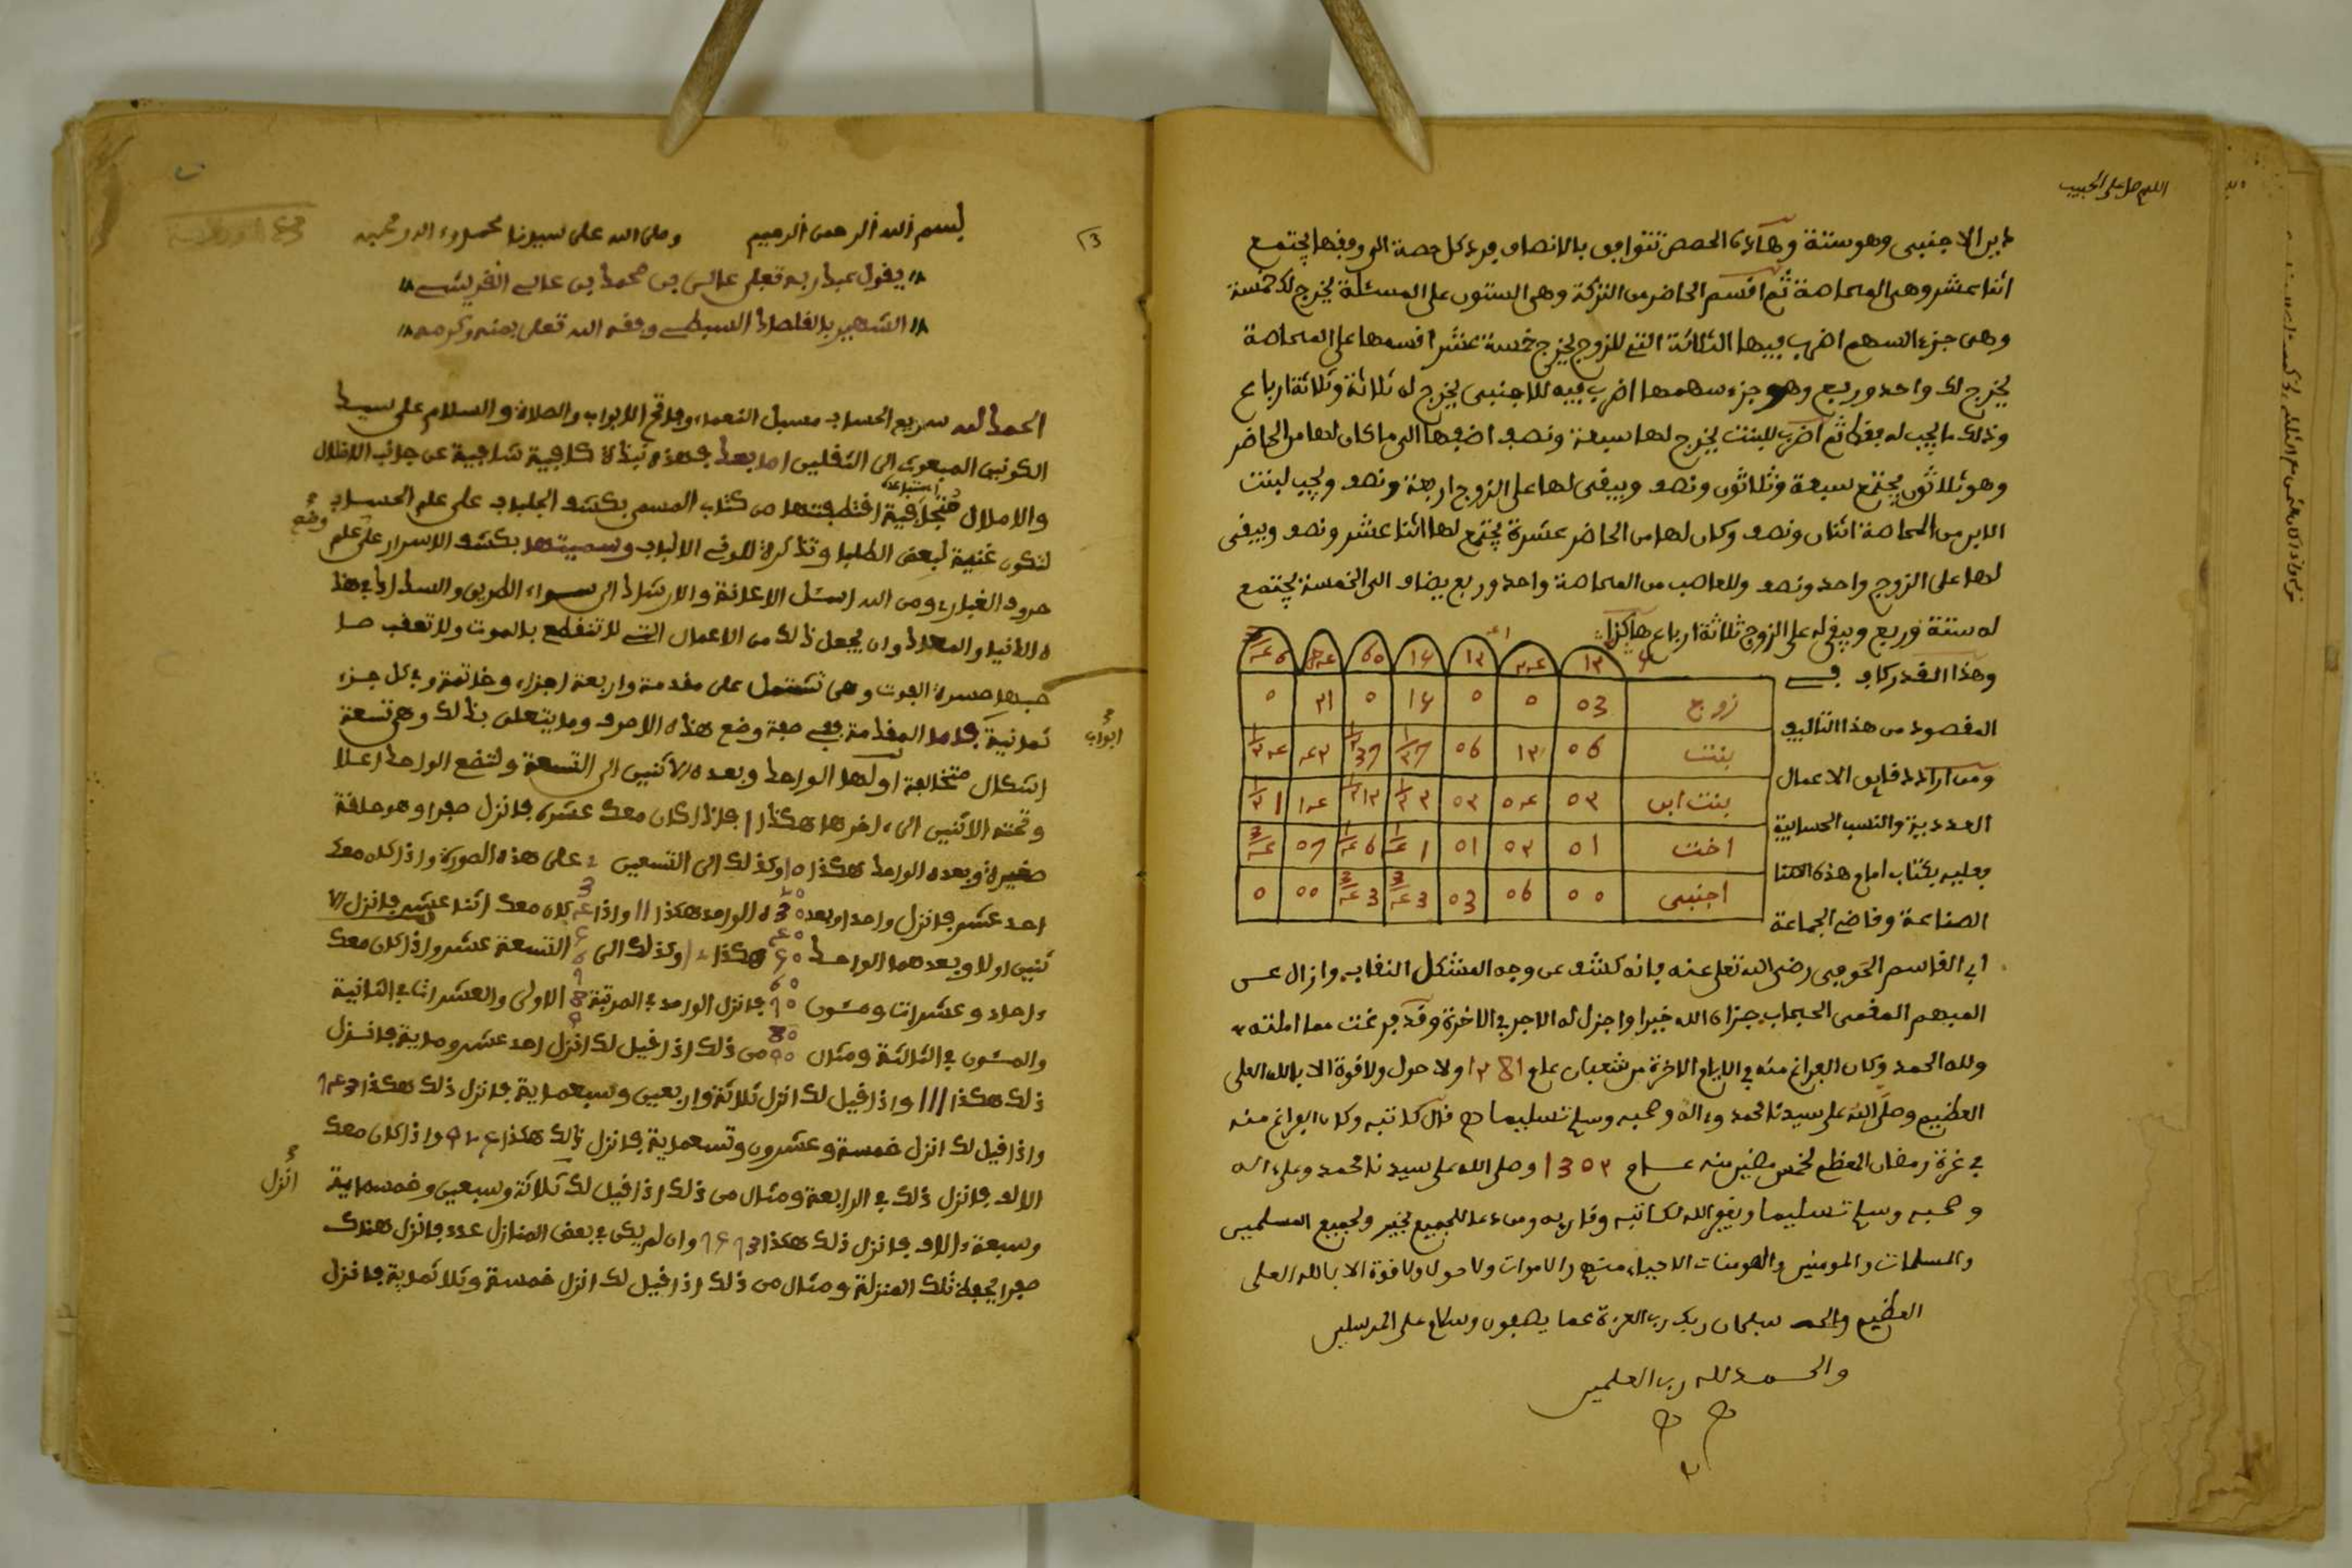 اللهم صل على الحبيب
دين الاجنبي وهو ستة وهاذه الحصص تتوافق بالانصاف فرد كل حصة الى وفقها يجتمع
اثنا عشر وهي المحاصة ثم اقسم الحاضر من التركة وهي الستون على المسئلة يخرج لك خمسة
وهى جزء السهم اضرب فيها الثلاثة التي للزوج يخرج خمسة عشر اقسمها على المحاصة
يخرج لك واحد وربع وهو جزء سهمها اضرب فيه للاجنبي يخرج له ثلاثة وثلاثة ارباع
وذلك ما يجب له فقط ثم اضرب للبنت يخرج لها سبعة ونصف اضفها الى ما كان لها من الحاضر
وهو ثلاثون يجتمع سبعة وثلاثون ونصف ويبقى لها على الزوج اربعة ونصف ويجب لبنت
الابن من المحاصة اثنان ونصف وكان لها من الحاضر عشرة يجتمع لها اثنا عشر ونصف ويبقى
لها على الزوج واحد ونصف وللعاصب من المحاصة واحد وربع يضاف الى الخمسة يجتمع
له ستة وربع ويبقى له على الزوج ثلاثة ارباع هاكذا
وهذا القدر كاف في
المقصود من هذا التاليف
ومن اراد دقايق الاعمال
العددية والنسب الحسابية
فعليه بكتاب امام هذه
الصناعة وقاضي الجماعة
زوج
بنت
بنت ابن
اخت
اجنبي
ابي القاسم الحوفي رضي الله تعلى عنه فانه كشف عن وجه المشكل النقاب وازال عن
المبهم المعمى الحجاب جزاه الله خيرا واجزل له الاجر في الاخرة وقد فرغت مما املته
ولله الحمد وكان الفراغ منه في الايام الاخرة من شعبان عام ١٢81 ولا حول ولا قوة الا بالله العلى
العظيم وصلى الله على سيدنا محمد وءاله وصحبه وسلم تسليما قال كاتبه وكان الفراغ منه
في غرة رمضان المعظم لخمس مضين منه عام 13٥٢ وصلى الله على سيدنا محمد وعلى ءاله
وصحبه وسلم تسليما ويغفر الله لكاتبه وقاريه ومن دعا للجميع بخير ولجميع المسلمين
والمسلمات والمومنين والمومنات الاحياء منهم والاموات ولا حول ولا قوة الا بالله العلى
العظيم سبحان ربك رب العزة عما يصفون وسلام على المرسلين
والحمد لله رب العلمين
بسم الله الرحمن الرحيم وصلى الله على سيدنا محمد وءاله وصحبه
يقول عبد ربه تعلى على بن محمد بن على القريشي
الشهير بالقلصاد البسطي وفقه الله تعلى بمنه وكرمه
الحمد لله سريع الحساب مسبل النعماء وفاتح الابواب والصلاة والسلام على سيد
الكونين المبعوث الى الثقلين اما بعد فهذه نبذة كافية شافية عن جانب الاقلال
والاملال متجافية اقتطفتها من كتاب المسمى بكشف الجلباب على علم الحساب
لتكون غنية لبعض الطلبا وتذكرة لاولى الالباب وسميتها بكشف الاسرار على علم وضع
حروف الغبار ومن الله اسئل الاعانة والارشاد الى سواء الطريق والسداد في هذ
ه الدنيا والمعاد وان يجعل ذلك من الاعمال التي لا تنقطع بالموت ولا تعقب صا
حبها حسرة الفوت وهى تشتمل على مقدمة واربعة اجزاء وخاتمة وفي كل جزء
ثمانية ابواب فاما المقدمة ففي صفة وضع هذه الاحرف وما يتعلق بذلك وهى تسعة
اشكال متخالفة اولها الواحد وبعده الاثنين الى التسعة ولتضع الواحد اعلا
وتحته الاثنين الى ءاخرها هكذا ١ فاذا كان معك عشرة فانزل صفرا وهو حلقة
صغيرة وبعده الواحد هكذا ١٥ وكذلك الى التسعين على هذه الصورة واذا كان معك
احد عشر فانزل واحدا وبعده الواحد هكذا ١١ واذا كان معك اثنا عشر فانزل الا
ثنين اولا وبعدهما الواحد هكذا ١٢ وكذلك الى التسعة عشر واذا كان معك
ءاحاد وعشرات ومئون فانزل الواحد في المرتبة الاولى والعشرات في الثانية
والمئون في الثالثة ومثال من ذلك اذا قيل لك انزل احد عشر وماية فانزل
ذلك هكذا ١١١ واذا قيل لك انزل ثلاثة واربعين وسبعماية فانزل ذلك هكذا
واذا قيل لك انزل خمسة وعشرون وتسعماية فانزل ذلك هكذا واذا كان معك
الالف فانزل ذلك في الرابعة ومثال من ذلك اذا قيل لك انزل ثلاثة وسبعين وخمسماية
وسبعة ءالاف فانزل ذلك هكذا وان لم يكن في بعض المنازل عدد فانزل هناك
صفرا يحفظ تلك المنزلة ومثال من ذلك اذا قيل لك انزل خمسة وثلاثماية فانزل